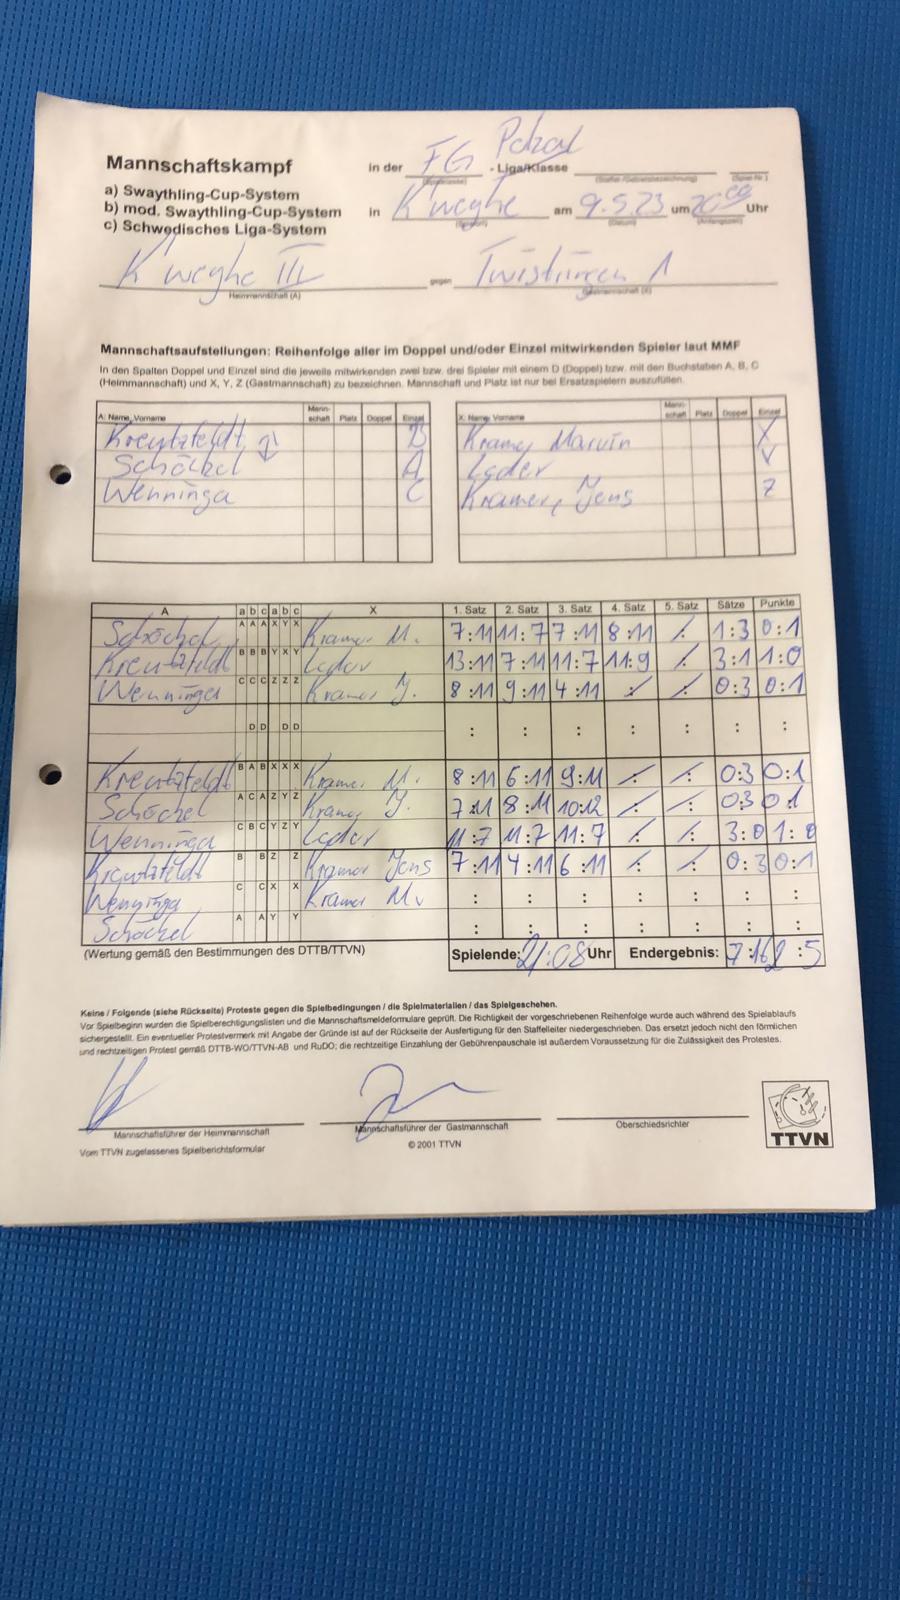 Mannschaftskampf in der FG Pokal - Liga/Klasse
a) Swaythling-Cup-System
b) mod. Swaythling-Cup-System in K'weyhe am 9.5.23 um 20 00 Uhr
c) Schwedisches Liga-System
K'weyhe III gegen Twistringen 1
Heimmannschaft (A)
Mannschaftsaufstellungen: Reihenfolge aller im Doppel und/oder Einzel mitwirkenden Spieler laut MMF
In den Spalten Doppel und Einzel sind die jeweils mitwirkenden zwei bzw. drei Spieler mit einem D (Doppel) bzw. mit den Buchstaben A, B, C
(Heimmannschaft) und X, Y, Z (Gastmannschaft) zu bezeichnen. Mannschaft und Platz ist nur bei Ersatzspielern auszufüllen.
A: Name, Vorname Mann-schaft Platz Doppel Einzel X: Name, Vorname Mann-schaft Platz Doppel Einzel
Kreutzfeldt B Kramer Marvin X
Schöckel A Leder Y
Wenninga C Kramer, Jens Z
A a b c a b c X 1. Satz 2. Satz 3. Satz 4. Satz 5. Satz Sätze Punkte
Schöckel A A A X Y X Kramer M. 7:11 11:7 7:11 8:11 : 1:3 0:1
Kreutzfeldt B B B Y X Y Leder 13:11 7:11 11:7 11:9 : 3:1 1:0
Wenninga C C C Z Z Z Kramer J. 8:11 9:11 4:11 : : 0:3 0:1
D D D D : : : : : : :
Kreutzfeldt B A B X X X Kramer M. 8:11 6:11 9:11 : : 0:3 0:1
Schöckel A C A Z Y Z Kramer J. 7:11 8:11 10:12 : : 0:3 0:1
Wenninga C B C Y Z Y Leder 11:7 11:7 11:7 : : 3:0 1:0
Kreutzfeldt B B Z Z Kramer Jens 7:11 4:11 6:11 : : 0:3 0:1
Wenninga C C X X Kramer M. : : : : : : :
Schöckel A A Y Y : : : : : : :
(Wertung gemäß den Bestimmungen des DTTB/TTVN) Spielende: 21:08 Uhr Endergebnis: 7:16 2:5
Keine / Folgende (siehe Rückseite) Proteste gegen die Spielbedingungen / die Spielmaterialien / das Spielgeschehen.
Vor Spielbeginn wurden die Spielberechtigungslisten und die Mannschaftsmeldeformulare geprüft. Die Richtigkeit der vorgeschriebenen Reihenfolge wurde auch während des Spielablaufs
sichergestellt. Ein eventueller Protestvermerk mit Angabe der Gründe ist auf der Rückseite der Ausfertigung für den Staffelleiter niedergeschrieben. Das ersetzt jedoch nicht den förmlichen
und rechtzeitigen Protest gemäß DTTB-WO/TTVN-AB und RuDO; die rechtzeitige Einzahlung der Gebührenpauschale ist außerdem Voraussetzung für die Zulässigkeit des Protestes.
Mannschaftsführer der Heimmannschaft Mannschaftsführer der Gastmannschaft Oberschiedsrichter
Vom TTVN zugelassenes Spielberichtsformular © 2001 TTVN
TTVN